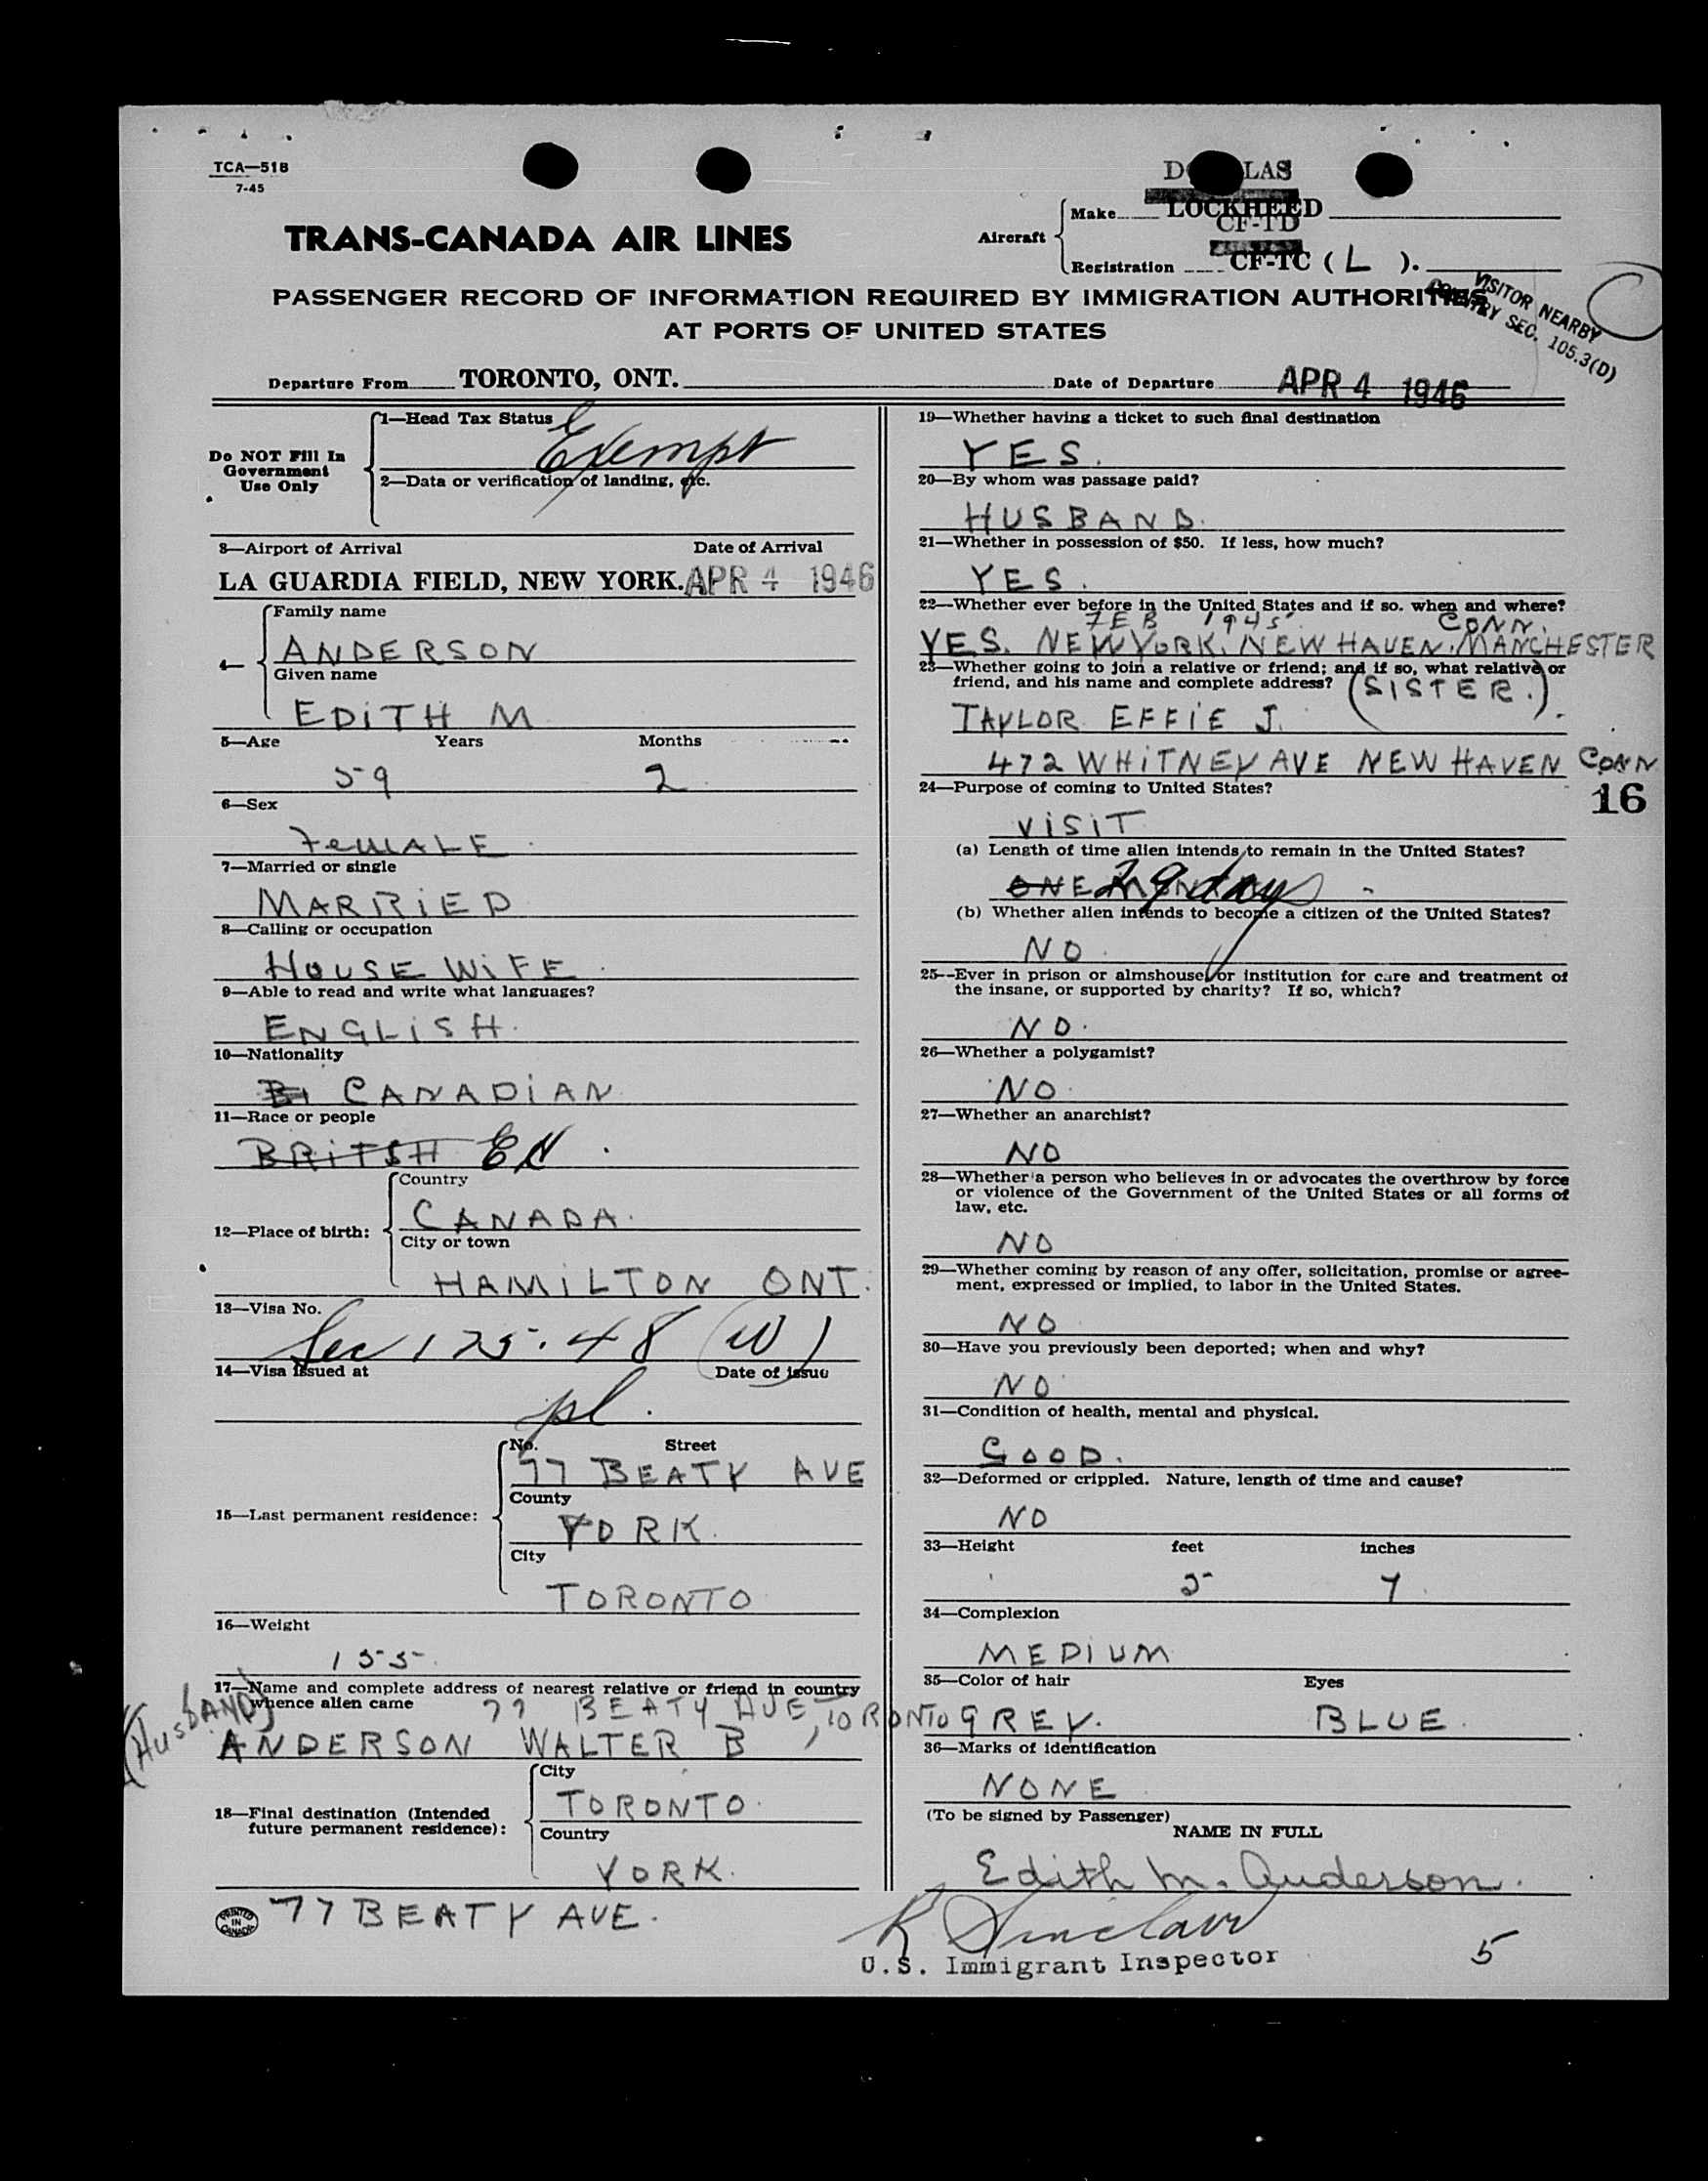 TCA—518
7-45
TRANS-CANADA AIR LINES
Aircraft
Make LOCKHEED
CF-TD
Registration CF-TC ( L ).
PASSENGER RECORD OF INFORMATION REQUIRED BY IMMIGRATION AUTHORITIES
AT PORTS OF UNITED STATES
VISITOR NEARBY
COUNTRY SEC. 105.3(D)
Departure From TORONTO, ONT. Date of Departure APR 4 1946
Do NOT Fill In
Government
Use Only
1—Head Tax Status
Exempt
2—Data or verification of landing, etc.
3—Airport of Arrival Date of Arrival
LA GUARDIA FIELD, NEW YORK. APR 4 1946
4—
Family name
ANDERSON
Given name
EDITH M
5—Age Years Months
59 2
6—Sex
FEMALE
7—Married or single
MARRIED
8—Calling or occupation
HOUSE WIFE
9—Able to read and write what languages?
ENGLISH.
10—Nationality
CANADIAN
11—Race or people
BRITSH EN.
12—Place of birth:
Country
CANADA.
City or town
HAMILTON ONT.
13—Visa No.
Sec 125.48 (W)
14—Visa issued at Date of issue
pl.
15—Last permanent residence:
No. Street
77 BEATY AVE
County
YORK.
City
TORONTO
16—Weight
155.
17—Name and complete address of nearest relative or friend in country
whence alien came
77 BEATY AVE, TORONTO
(HUSBAND)
ANDERSON WALTER B
18—Final destination (Intended
future permanent residence):
City
TORONTO.
Country
YORK.
77 BEATY AVE.
PRINTED
IN
CANADA
19—Whether having a ticket to such final destination
YES.
20—By whom was passage paid?
HUSBAND.
21—Whether in possession of $50. If less, how much?
YES.
22—Whether ever before in the United States and if so. when and where?
FEB 1945 CONN.
YES. NEW YORK. NEW HAVEN. MANCHESTER
23—Whether going to join a relative or friend; and if so, what relative or
friend, and his name and complete address?
(SISTER.)
TAYLOR EFFIE J.
472 WHITNEY AVE NEW HAVEN CONN
16
24—Purpose of coming to United States?
VISIT
(a) Length of time alien intends to remain in the United States?
ONE MONTH 29 days
(b) Whether alien intends to become a citizen of the United States?
NO
25—Ever in prison or almshouse, or institution for care and treatment of
the insane, or supported by charity? If so, which?
NO.
26—Whether a polygamist?
NO
27—Whether an anarchist?
NO
28—Whether a person who believes in or advocates the overthrow by force
or violence of the Government of the United States or all forms of
law, etc.
NO
29—Whether coming by reason of any offer, solicitation, promise or agree-
ment, expressed or implied, to labor in the United States.
NO
30—Have you previously been deported; when and why?
NO
31—Condition of health, mental and physical.
GOOD.
32—Deformed or crippled. Nature, length of time and cause?
NO
33—Height feet inches
5 7
34—Complexion
MEDIUM
35—Color of hair Eyes
GREY. BLUE.
36—Marks of identification
NONE
(To be signed by Passenger)
NAME IN FULL
Edith M. Anderson.
R Sinclair
U.S. Immigrant Inspector
5